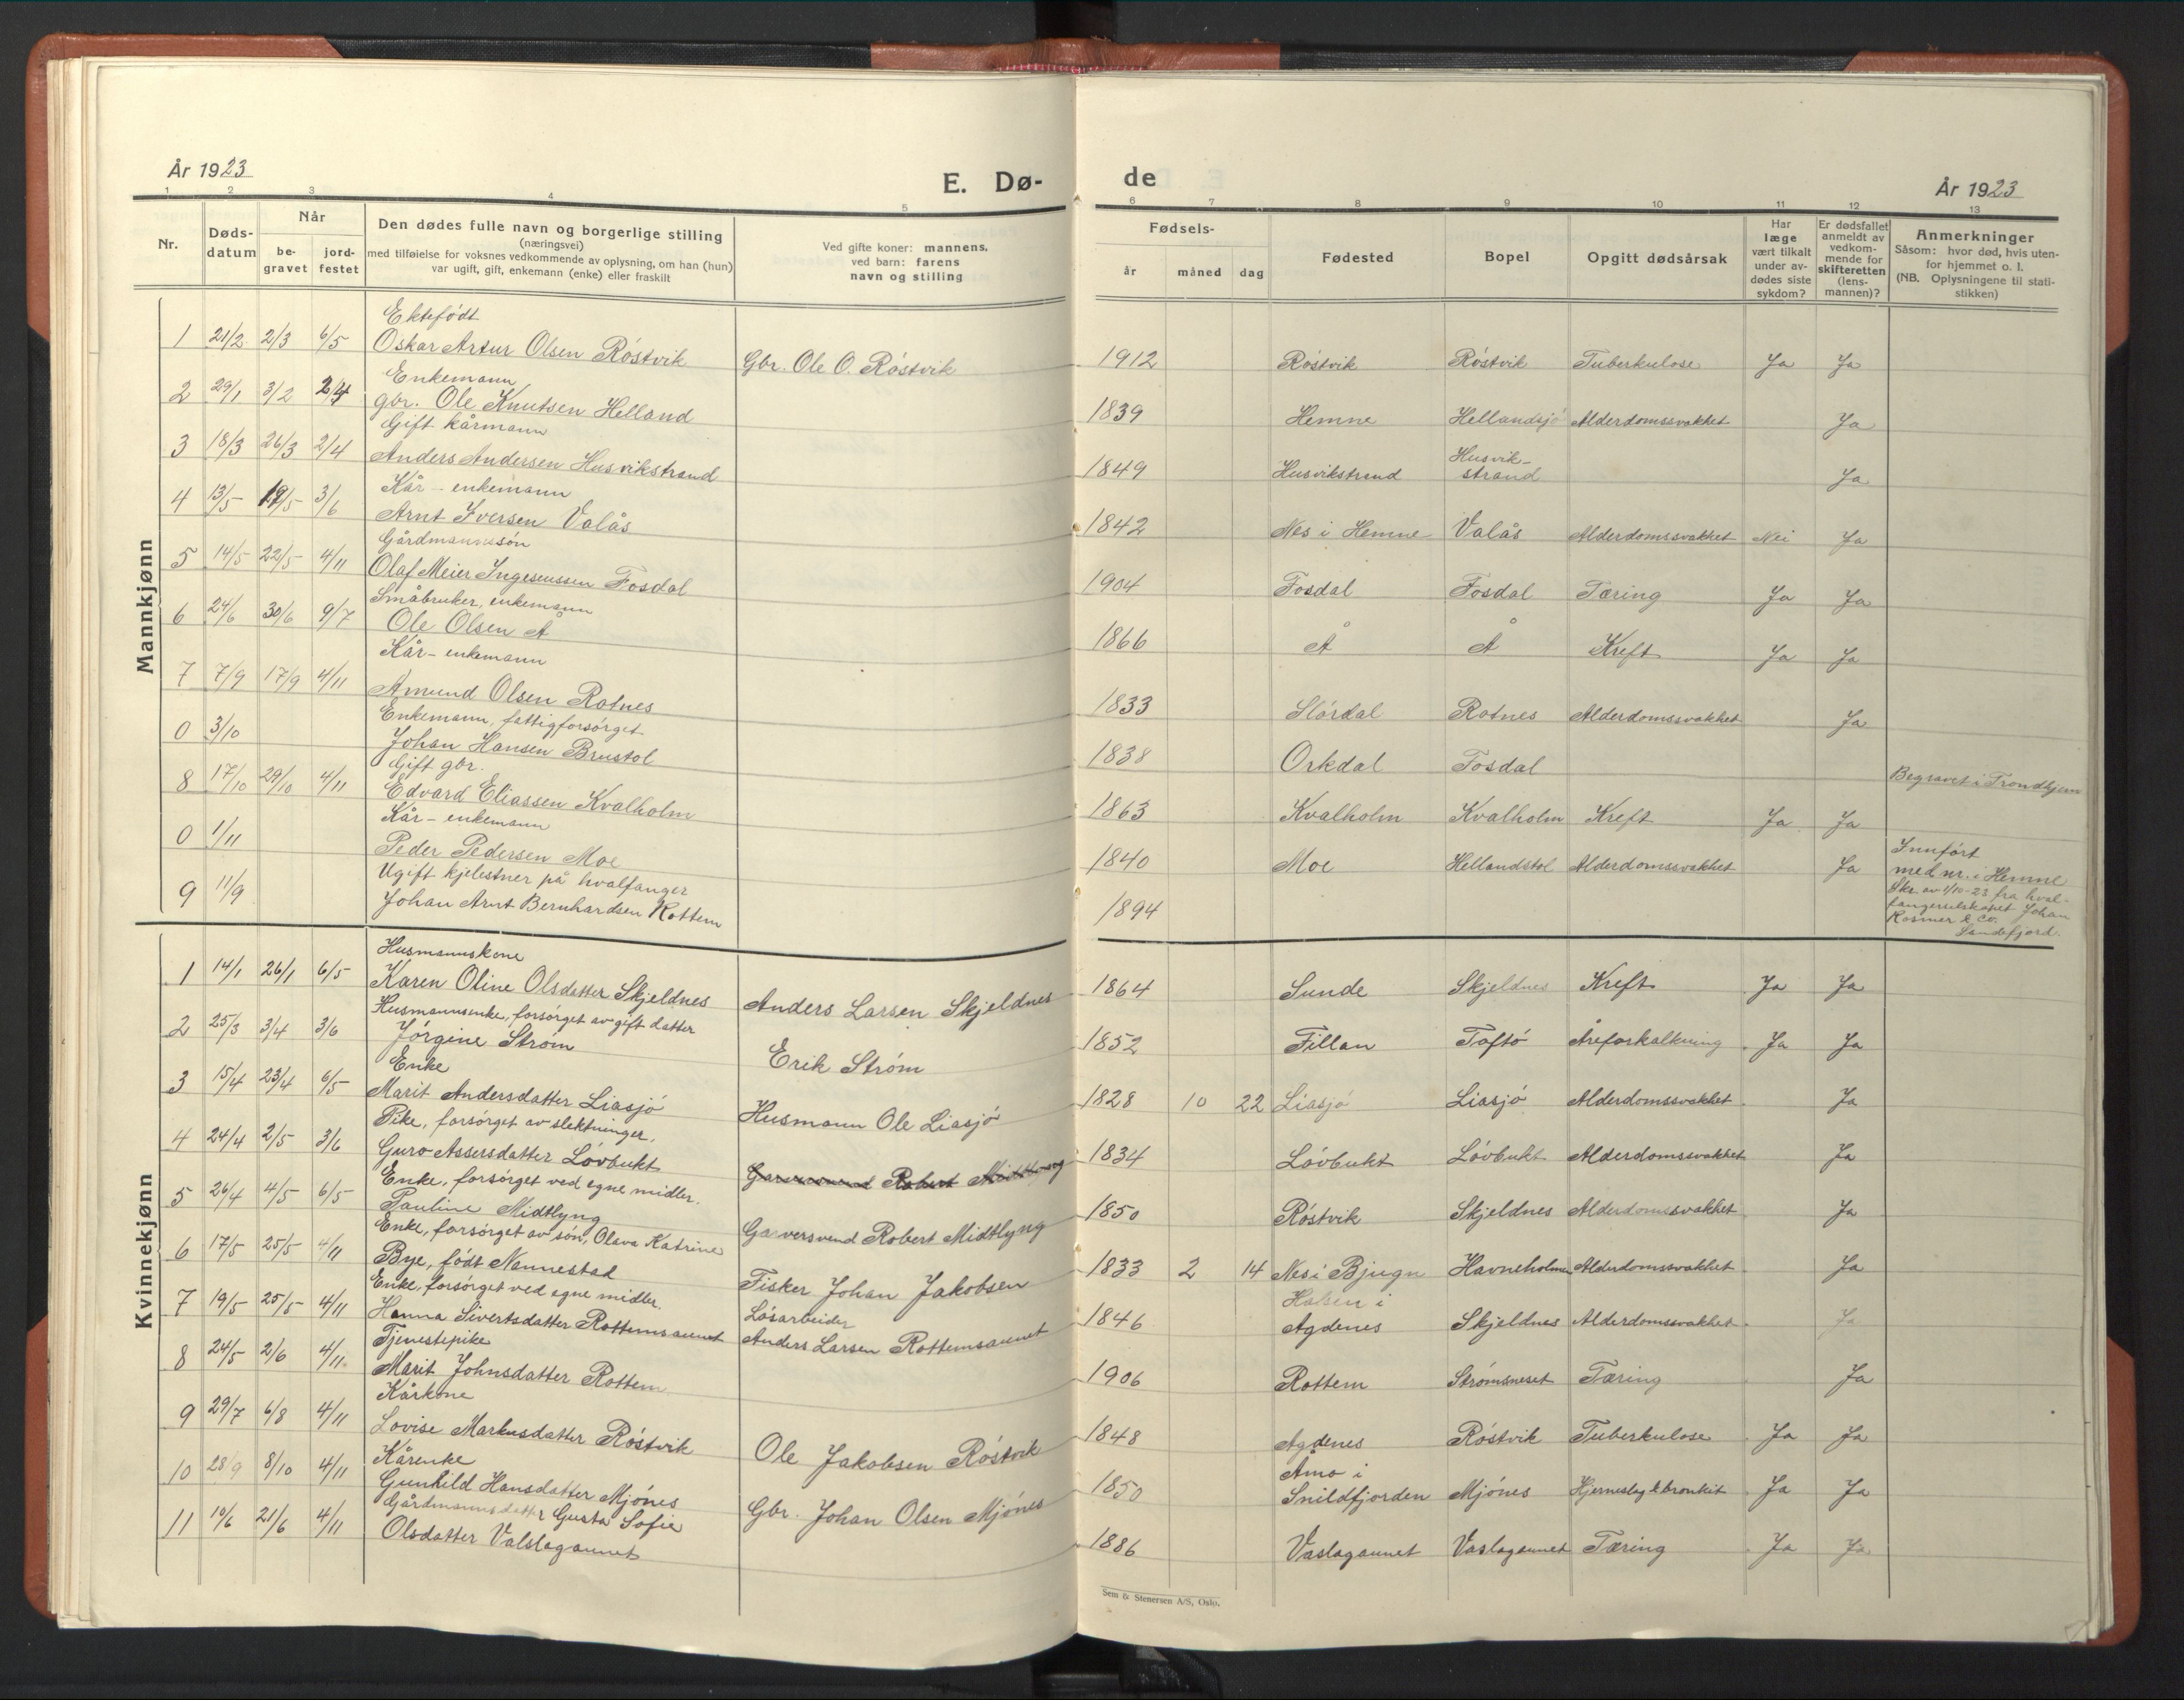 År 1923
E. Dø-
1 2 3 4 5
Nr.
Døds-
datum
Når
be-
gravet
jord-
festet
Den dødes fulle navn og borgerlige stilling
(næringsvei)
med tilføielse for voksnes vedkommende av oplysning, om han (hun)
var ugift, gift, enkemann (enke) eller fraskilt
Ved gifte koner: mannens,
ved barn: farens
navn og stilling
Mannkjønn
Ektefödt
1 21/2 2/3 6/5 Oskar Artur Olsen Röstvik Gbr. Ole O. Röstvik
Enkemann
2 29/1 3/2 2/4 gbr. Ole Knutsen Helland
Gift kårmann
3 18/3 26/3 2/4 Anders Andersen Husvikstrand
Kår - enkemann
4 13/5 19/5 3/6 Arnt Iversen Valås
Gårdmannssön
5 14/5 22/5 4/11 Olaf Meier Fosdal
Småbruker, enkemann
6 24/6 30/6 9/7 Ole Olsen Å
Kår - enkemann
7 7/9 17/9 4/11 Amund Olsen Rotnes
Enkemann, fattigforsörget
0 3/10 Johan Hansen Brustol
Gift gbr.
8 17/10 29/10 4/11 Edvard Eliassen Kvalholm
Kår - enkemann
0 1/11 Peder Pedersen Moe
Ugift kjelestner på hvalfanger
9 11/9 Johan Arnt Bernhardsen Rottem
Kvinnekjønn
Husmannskone
1 14/1 26/1 6/5 Karen Oline Olsdatter Skjeldnes Anders Larsen Skjeldnes
Husmannsenke, forsörget av gift datter
2 25/3 3/4 3/6 Jörgine Ström Erik Ström
Enke
3 15/4 23/4 6/5 Marit Andersdatter Liasjö Husmann Ole Liasjö
Pike, forsörget av slektninger.
4 24/4 2/5 3/6 Guro Assersdatter Lövbukt
Enke, forsörget ved egne midler. Garversvend Robert Midtlyng
5 26/4 4/5 6/5 Pauline Midtlyng Garversvend Robert Midtlyng
Enke, forsörget av sön, Olava Katrine
6 17/5 25/5 4/11 Bye, födt Nannestad Fisker Johan Jakobsen
Enke, forsörget ved egne midler. Lösarbeider
7 19/5 25/5 4/11 Hanna Sivertsdatter Rottemsaunet Anders Larsen Rottemsaunet
Tjenestepike
8 24/5 2/6 4/11 Marit Johnsdatter Rottem
Kårkone
9 29/7 6/8 4/11 Lovise Markusdatter Röstvik Ole Jakobsen Röstvik
Kårenke
10 28/9 8/10 4/11 Gunhild Hansdatter Mjönes Gbr. Johan Olsen Mjönes
Gårdmannsdatter Gusta Sofie
11 10/6 21/6 4/11 Olsdatter Valslagaunet
de
År 1923
6 7 8 9 10 11 12 13
Fødsels-
år måned dag
Fødested
Bopel
Opgitt dødsårsak
Har
læge
vært tilkalt
under av-
dødes siste
sykdom?
Er dødsfallet
anmeldt av
vedkom-
mende for
skifteretten
(lens-
mannen)?
Anmerkninger
Såsom: hvor død, hvis uten-
for hjemmet o. l.
(NB. Oplysningene til stati-
stikken)
1912 Röstvik Röstvik Tuberkulose Ja Ja
1839 Hemne Hellandsjö Alderdomssvakhet Ja
1849 Husvikstrand Husvik-
strand Ja
1842 Nes i Hemne Valås Alderdomssvakhet Nei Ja
1904 Fosdal Fosdal Tæring Ja Ja
1866 Å Å Kreft Ja Ja
1833 Slördal Rotnes Alderdomssvakhet Ja
1838 Orkdal Fosdal Begravet i Trondhjem
1863 Kvalholm Kvalholm Kreft Ja Ja
1840 Moe Hellandstol Alderdomssvakhet Ja Innfört
med nr. i Hemne
1894 Skr. av 1/10-23 fra hval-
fangerselskapet Johan
Rasmer & Co.
Sandefjord.
1864 Sunde Skjeldnes Kreft Ja Ja
1852 Fillan Töftö Åreforkalkning Ja Ja
1828 10 22 Liasjö Liasjö Alderdomssvakhet Ja
1834 Lövbukt Lövbukt Alderdomssvakhet Ja
1850 Röstvik Skjeldnes Alderdomssvakhet Ja
1833 2 14 Nes i Bjugn Havneholmen Alderdomssvakhet Ja
Halsen i
1846 Agdenes Skjeldnes Alderdomssvakhet Ja
1906 Rottem Strömsneset Tæring Ja
1848 Agdenes Röstvik Tuberkulose Ja Ja
Åmo i
1850 Snildfjorden Mjönes Hjerneslag & bronkit Ja Ja
1886 Vaslagaunet Vaslagaunet Tæring Ja Ja
Sem & Stenersen A/S, Oslo.